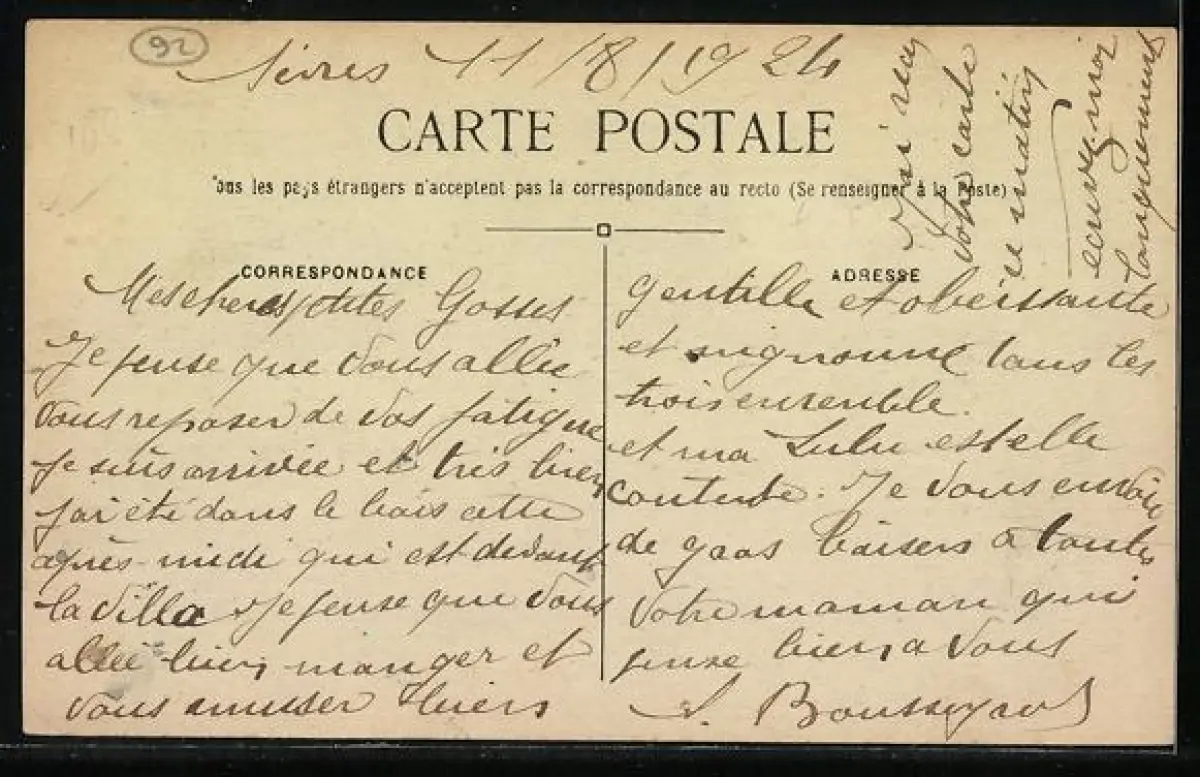 92
Sèvres 11/8/1924
CARTE POSTALE
Tous les pays étrangers n'acceptent pas la correspondance au recto (Se renseigner à la Poste)
J'ai reçu
votre carte
ce matin
ecrivez moi
longuement
CORRESPONDANCE
Mes cheres petites Gosses
Je pense que vous allée
vous reposer de vos fatigue
je suis arrivée et très bien
j'ai été dans le bois cette
après-midi qui est devant
la villa Je pense que vous
allée bien manger et
vous amuser bien
ADRESSE
gentille et obéissante
et mignonne tous les
trois ensemble.
et ma Lulu est elle
contente. Je vous envoie
de gros baisers a toutes
votre maman qui
pense bien a vous